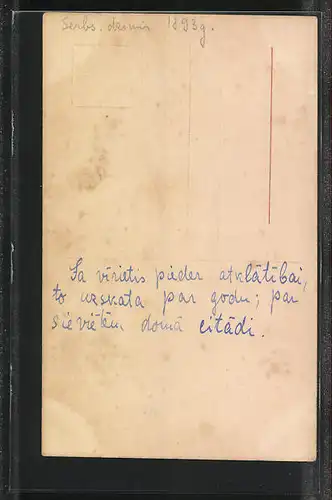 Serbs. dzimis 1893g.
Ja vīrietis pieder atklātībai,
to uzskata par godu; par
sievietēm domā citādi.